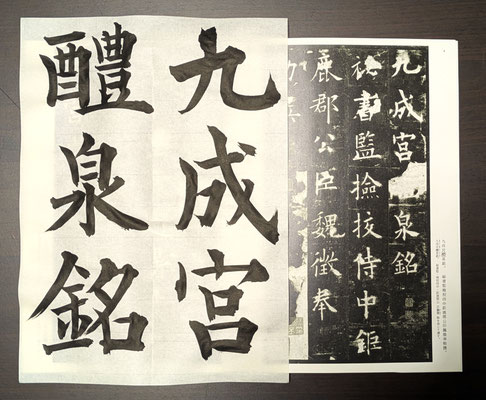 九成宮
醴泉銘
九成宮 泉銘
秘書監撿挍侍中鉅
鹿郡公臣魏徵奉